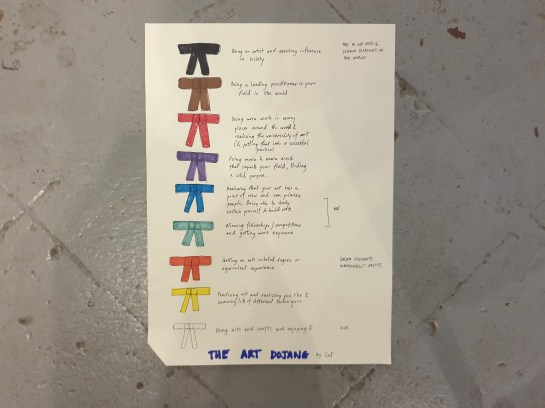 Being an artist and exerting influence
in society
Being a leading practitioner in your
field in the world
Doing more work in many
places around the world &
realising the universality of art
(& putting that into a successful
practice)
Doing more & more work
that impacts your field, finding
a solid purpose
Realising that your art has a
point of view and can influence
people. Being able to
yourself to build
Winning fellowships/competitions
and getting more exposure
Getting an art-related degree or
equivalent experience
Practising art and realising you like it
Learning lots of different techniques
Doing arts and crafts and enjoying it
THE
THE WORLD
ME
INDEPENDENT ARTISTS
KIDS
THE ART DOJANG by